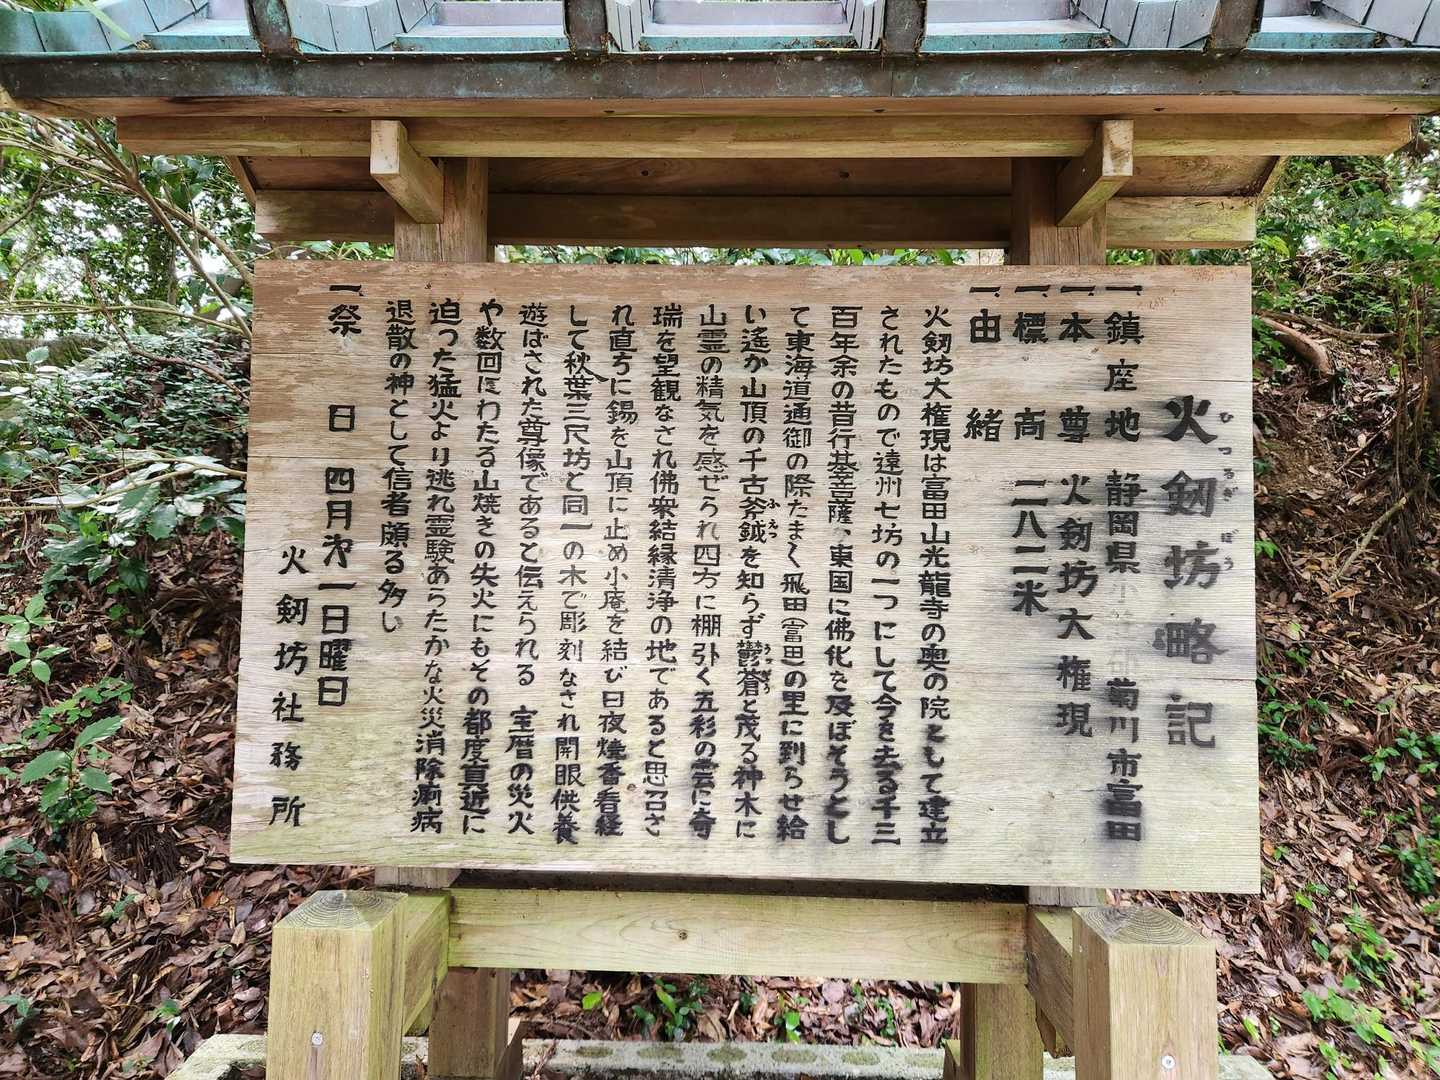 火剱坊略記
ひつるぎ ぼう
一、鎮座地 静岡県 菊川市富田
一、本尊 火剱坊大権現
一、標高 二八二米
一、由緒
火剱坊大権現は富田山光龍寺の奥の院として建立
されたもので遠州七坊の一つにして今を去る千三
百年余の昔行基菩薩、東国に佛化を及ぼそうとし
て東海道通御の際たま〱飛田(富田)の里に到らせ給
い遙か山頂の千古斧鉞を知らず鬱蒼と茂る神木に
ふえつ うっそう
山霊の精気を感ぜられ四方に棚引く五彩の雲に奇
瑞を望観なされ佛衆結縁清浄の地であると思召さ
れ直ちに錫を山頂に止め小庵を結び日夜焼香看経
して秋葉三尺坊と同一の木で彫刻なされ開眼供養
遊ばされた尊像であると伝えられる 宝暦の災火
や数回にわたる山焼きの失火にもその都度真近に
迫った猛火より逃れ霊験あらたかな火災消除痢病
退散の神として信者頗る多い
一、祭日 四月第一日曜日
火剱坊社務所